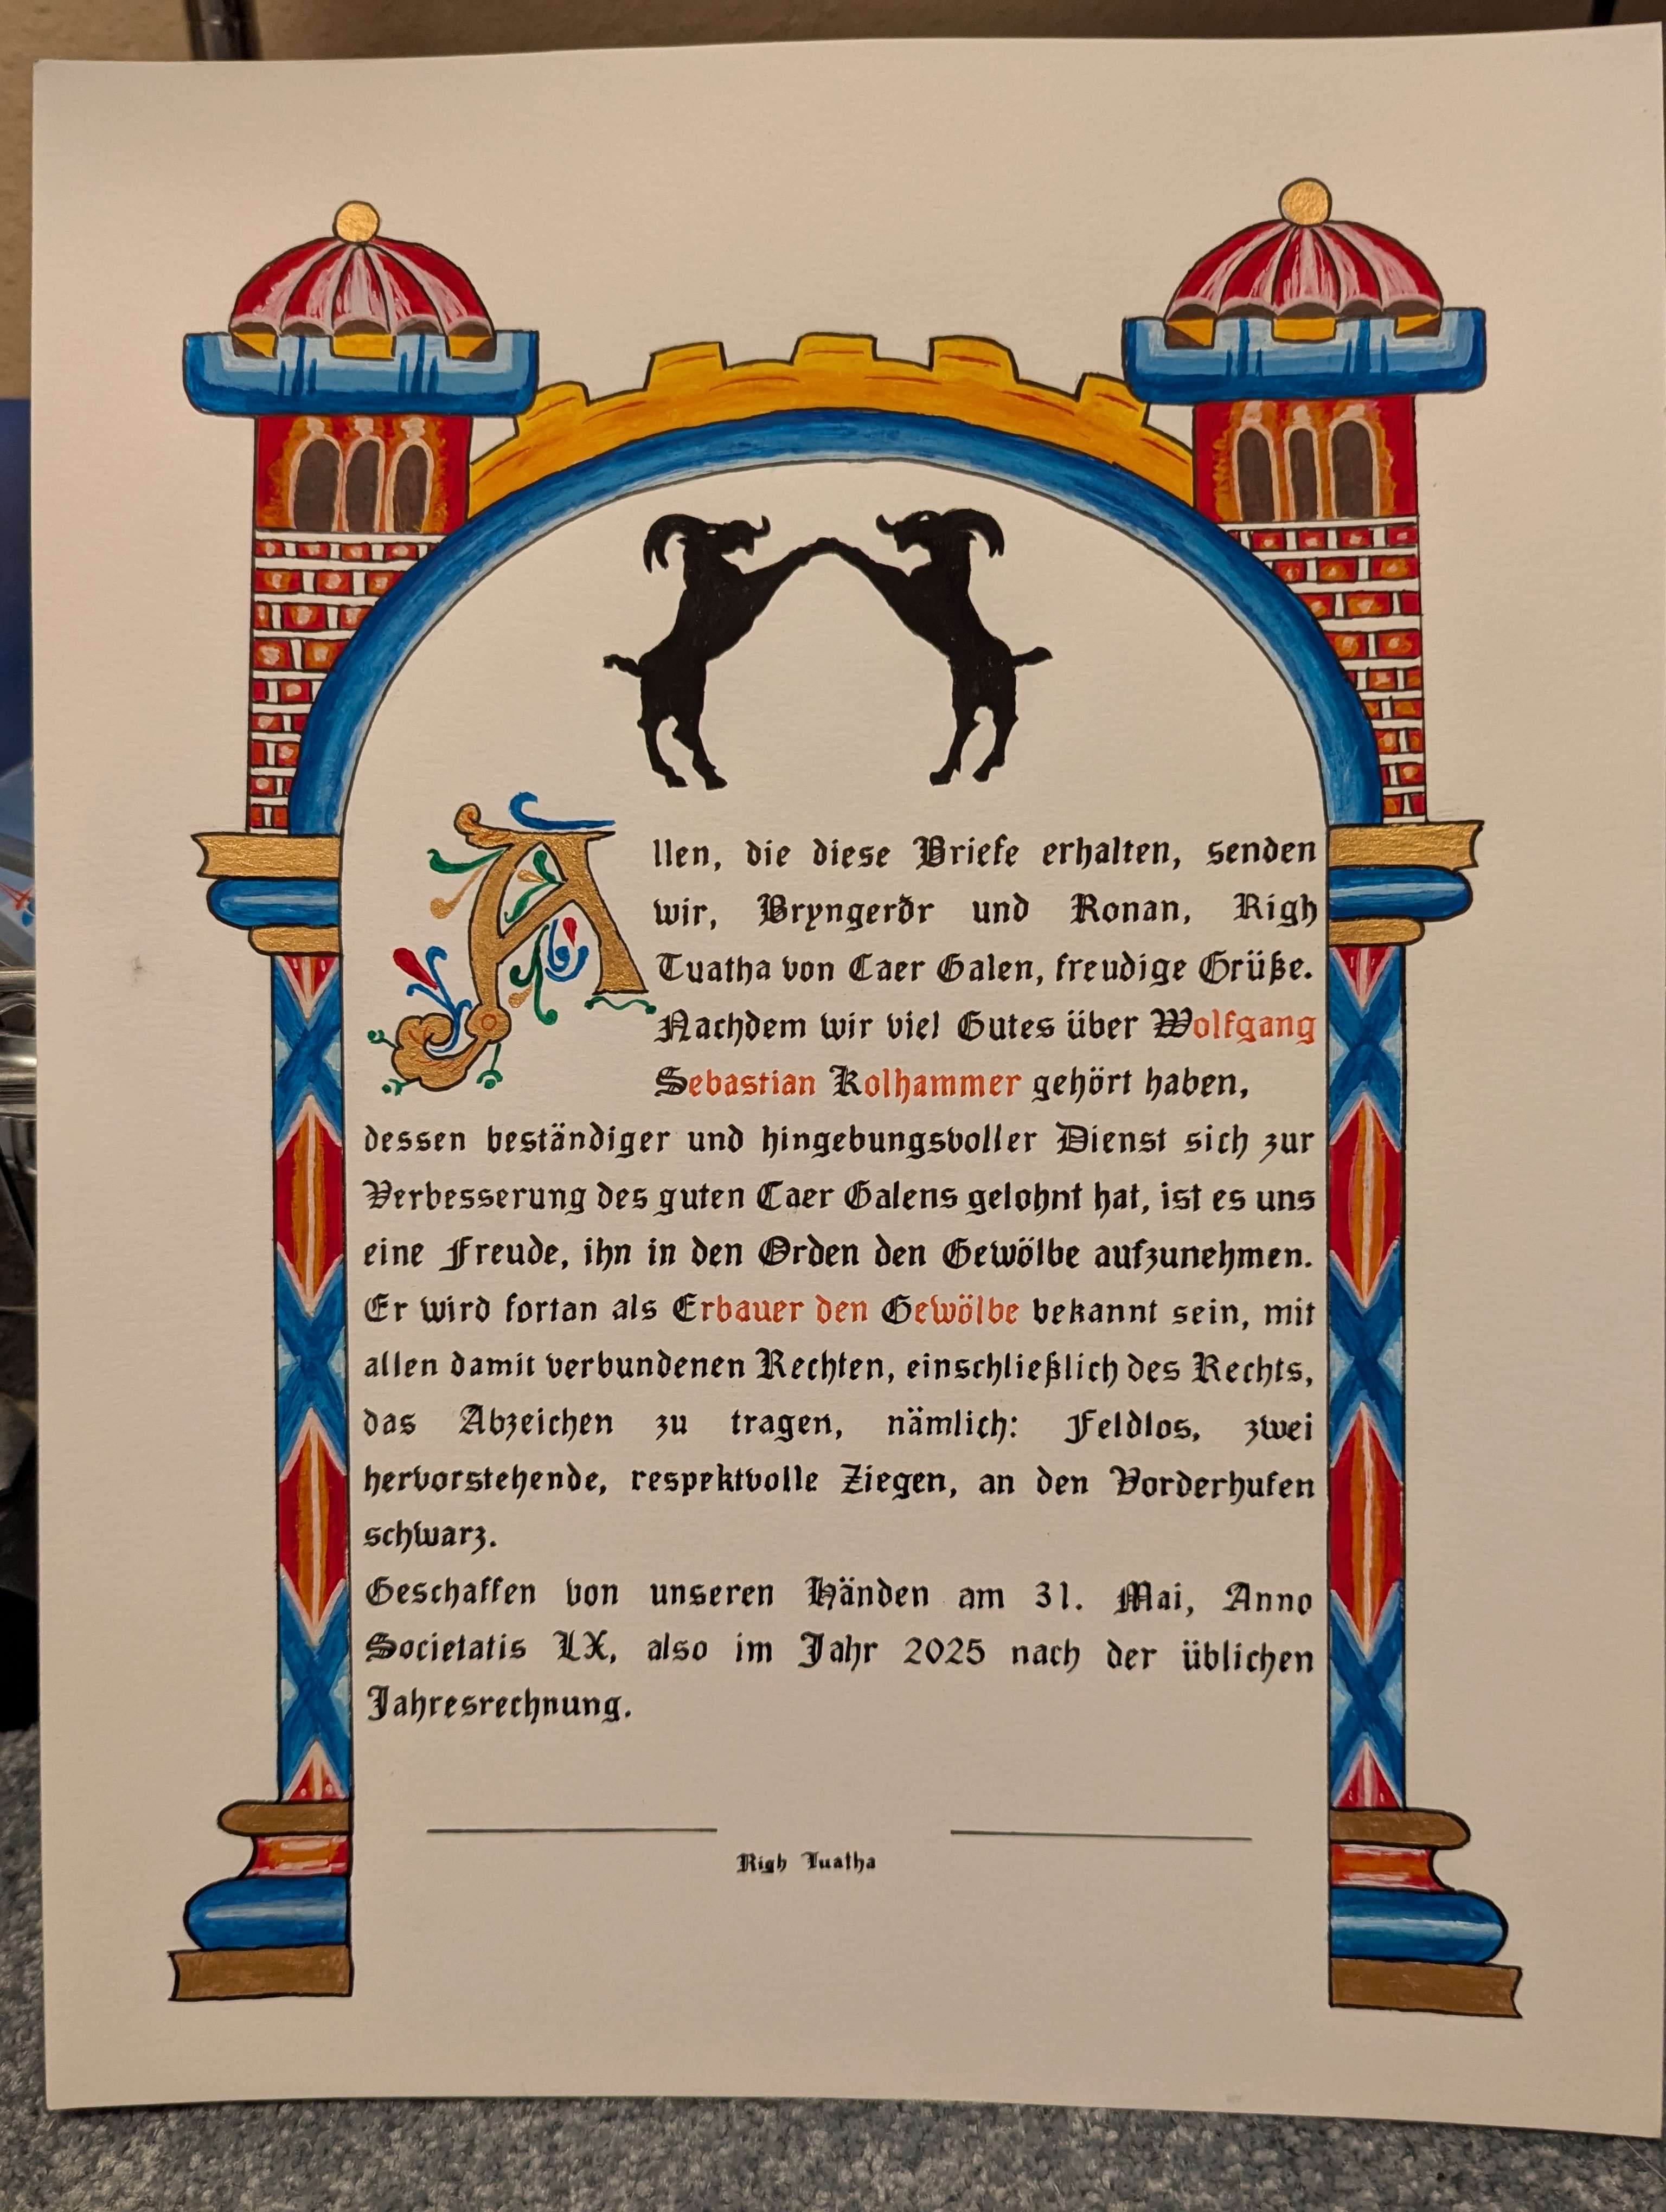 Allen, die diese Briefe erhalten, senden
wir, Bryngerðr und Ronan, Righ
Tuatha von Caer Galen, freudige Grüße.
Nachdem wir viel Gutes über Wolfgang
Sebastian Kolhammer gehört haben,
dessen beständiger und hingebungsvoller Dienst sich zur
Verbesserung des guten Caer Galens gelohnt hat, ist es uns
eine Freude, ihn in den Orden den Gewölbe aufzunehmen.
Er wird fortan als Erbauer den Gewölbe bekannt sein, mit
allen damit verbundenen Rechten, einschließlich des Rechts,
das Abzeichen zu tragen, nämlich: Feldlos, zwei
hervorstehende, respektvolle Ziegen, an den Vorderhufen
schwarz.
Geschaffen von unseren Händen am 31. Mai, Anno
Societatis LX, also im Jahr 2025 nach der üblichen
Jahresrechnung.
Righ Tuatha